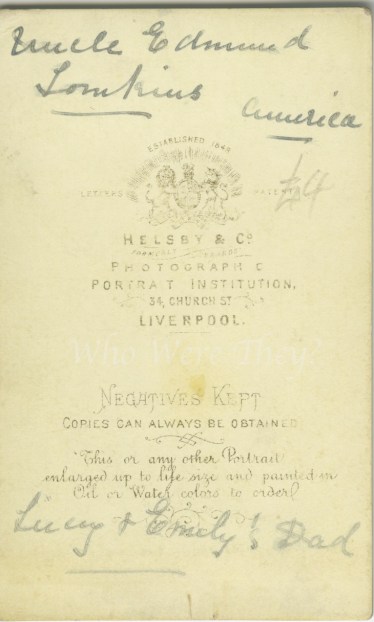 Uncle Edmund
Tomkins
America
ESTABLISHED
LETTERS PATENT
£4
HELSBY & Co
PHOTOGRAPHIC
PORTRAIT INSTITUTION,
34, CHURCH ST
LIVERPOOL.
Who Were They?
NEGATIVES KEPT
COPIES CAN ALWAYS BE OBTAINED
This or any other Portrait
enlarged up to life size and painted in
Oil or Water colors to order
Lucy & Emily's Dad